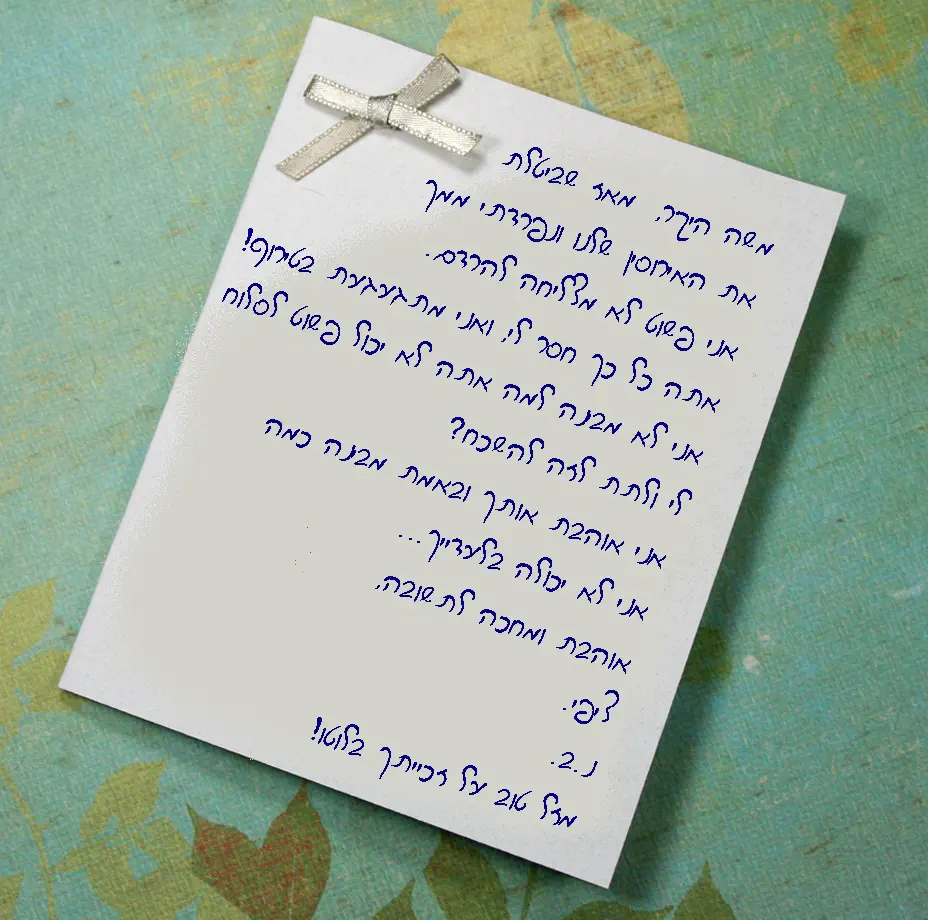 משה היקר, מאז שביטלת
את האירוסין שלנו ונפרדתי ממך
אני פשוט לא מצליחה להרדם.
אתה כל כך חסר לי, ואני מתגעגעת בטירוף!
אני לא מבנה למה אתה לא יכול פשוט לסלוח
לי ולתת לזה להשכח?
אני אוהבת אותך ובאמת מבנה כמה
אני לא יכולה בלעדייך...
אוהבת ומחכה לתשובה,
ציפי.
נ.ב.
מזל טוב על זכייתך בלוטו!